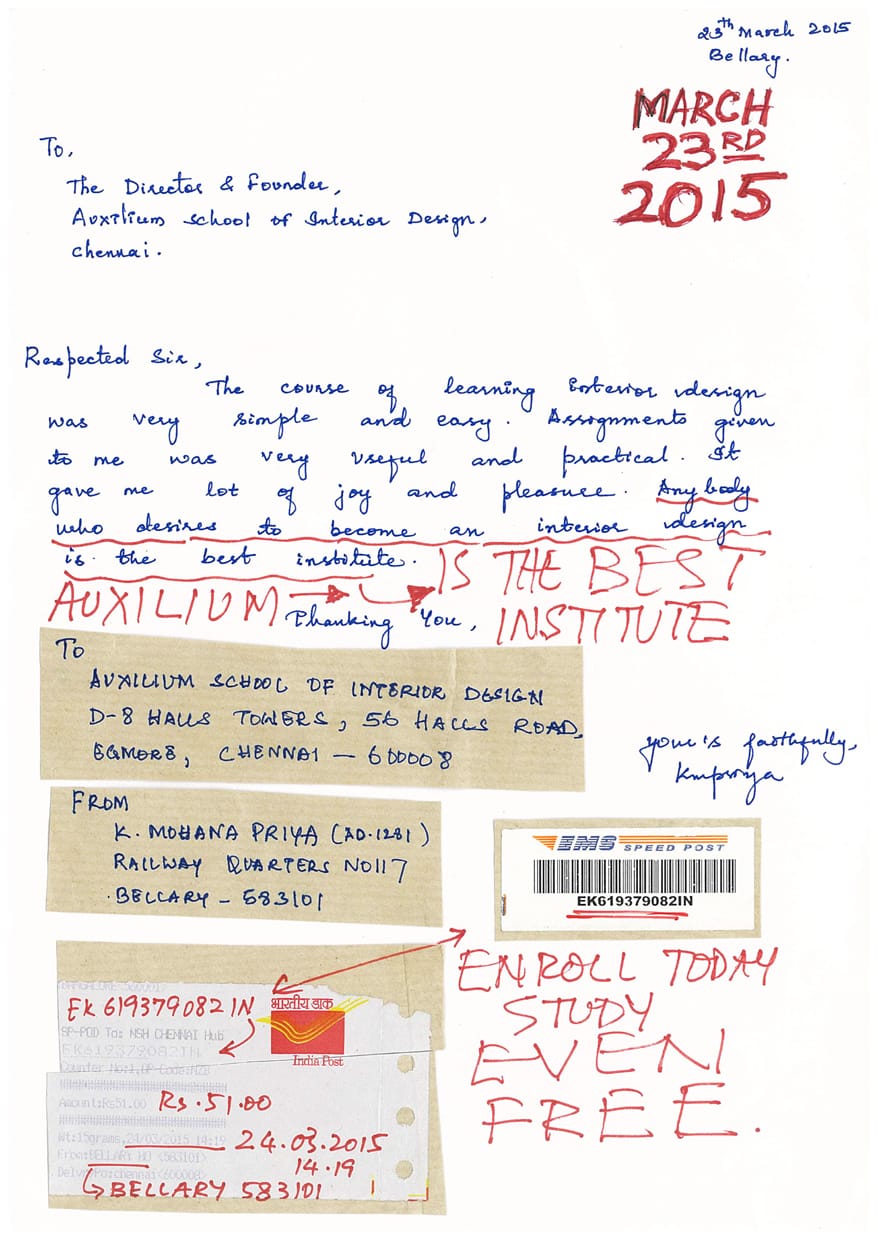 23th March 2015
Bellary.
MARCH
23RD
2015
To,
The Director & Founder,
Auxilium School of Interior Design,
Chennai.
Respected Sir,
The course of learning Interior design
was very simple and easy. Assignments given
to me was very useful and practical. It
gave me lot of joy and pleasure. Any body
who desires to become an interior design
is the best institute. IS THE BEST
AUXILIUM INSTITUTE
Thanking You,
To
AUXILIUM SCHOOL OF INTERIOR DESIGN
D-8 HALLS TOWERS, 56 HALLS ROAD,
EGMORE, CHENNAI – 600008
your's faithfully,
Kmpriya
FROM
K. MOHANA PRIYA (AD.1281)
RAILWAY QUARTERS NO 117
BELLARY – 583101
EMS SPEED POST
EK619379082IN
ENROLL TODAY
STUDY
EVEN
FREE.
EK 619379082 IN
भारतीय डाक
SP-POD To: NSH CHENNAI Hub
EK619379082IN
India Post
Amount:Rs51.00 Rs.51.00
Wt:15grams,24/03/2015 14:19 24.03.2015
14.19
From:BELLARY HO <583101>
BELLARY 583101